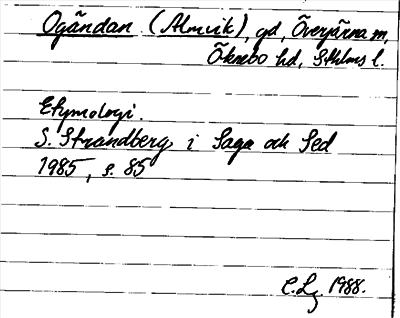 Ogändan (Almvik), gd, Överjärna sn,
Öknebo hd, Sthlms l.
Etymologi.
S. Strandberg i Saga och Sed
1985, s. 85
C.Lg 1988.